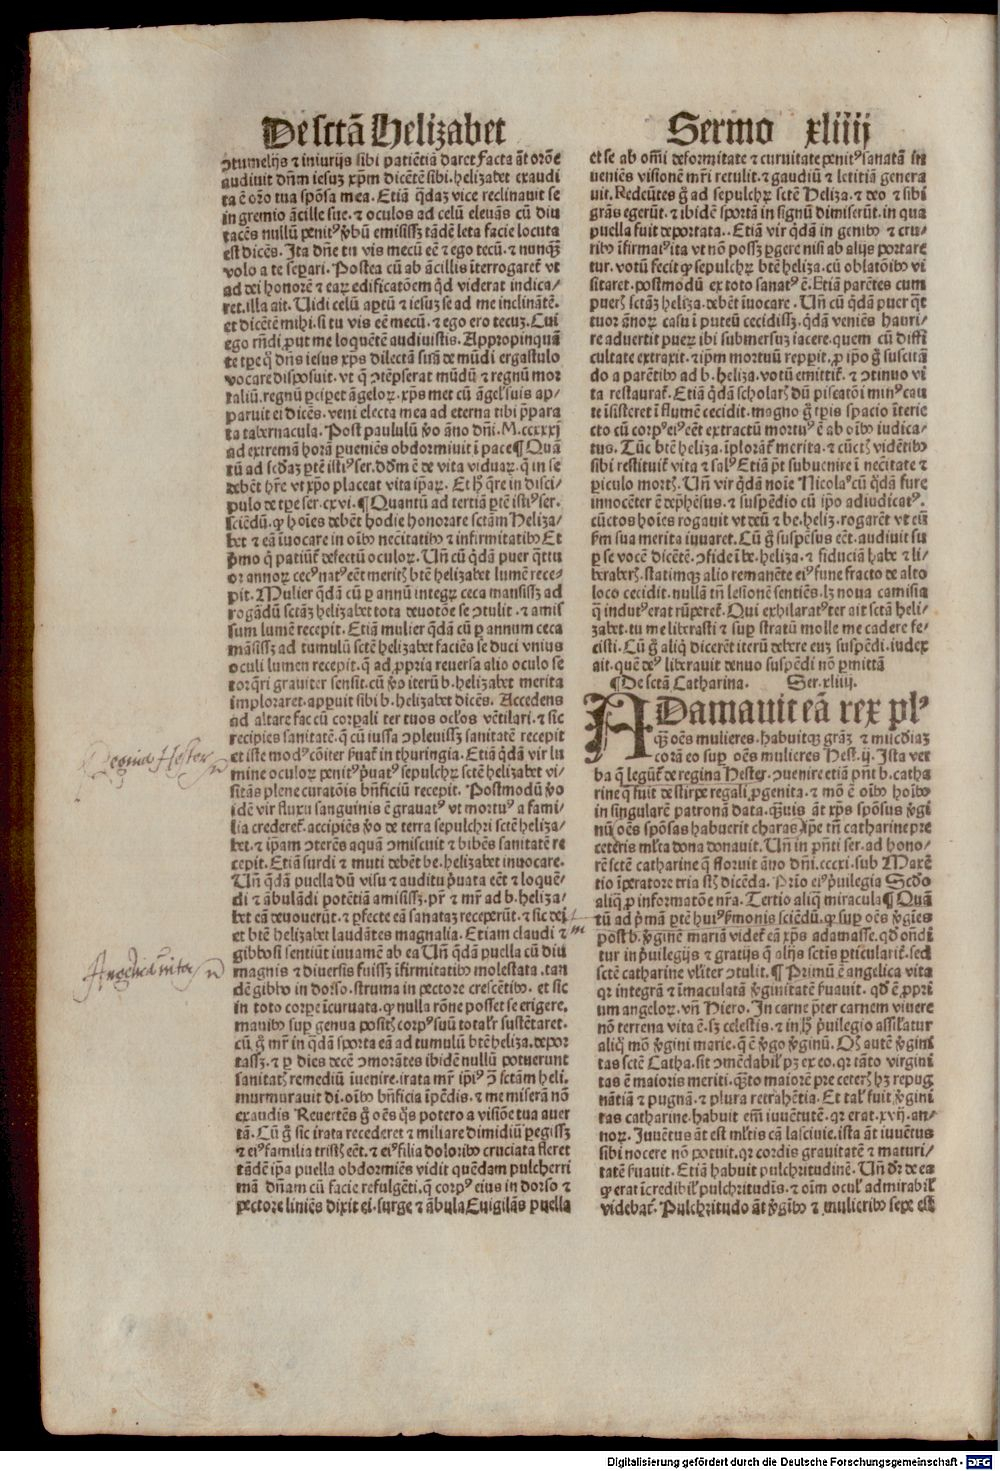 De sctā Helizabet
ꝯtumelijs ⁊ iniurijs sibi patiētiā daret Facta āt orōe
audiuit dn̄m iesuʒ xp̄m dicētē sibi. helizabet exaudi
ta ē or̄o tua spōsa mea. Etiā q̄daʒ vice reclinauit se
in gremio ācille sue. ⁊ oculos ad celū eleuās cū diu
tacēs nullū penitꝰ v̄bū emisissʒ tādē leta facie locuta
est dicēs. Ita dn̄e tu vis mecū eē ⁊ ego tecū. ⁊ nunqʒ
volo a te separi. Postea cū ab ācillis īterrogaret᷑ vt
ad dei honorē ⁊ eaꝝ edificatōem qd viderat indica/
ret. illa ait. Uidi celū aptū ⁊ iesuʒ se ad me inclinātē.
et dicētē mihi. si tu vis eē mecū. ⁊ ego ero tecuʒ. Cui
ego rn̄di ꝓut me loquētē audiuistis. Appropinquā
te tꝑe q̄ dn̄s iesus xp̄s dilectā suāʒ de mūdi ergastulo
vocare disposuit. vt q̄ ꝯtēpserat mūdū ⁊ regnū mor
taliū. regnū ꝑciꝑet āgeloꝝ. xp̄s met cū āgelꝭ suis ap/
paruit ei dicēs. veni electa mea ad eterna tibi p̄para
ta tabernacula. Post paululū v̄o āno dn̄i. M.ccxxxj
ad extremā horā ꝑueniēs obdormiuit ī pace¶Quā
tū ad scd̄aʒ ꝑtē istiꝰ ser. dd̄m ē de vita viduaꝝ. q̄ in se
debēt hr̄e vt xp̄o placeat vita ip̄aꝝ. Et hꝰ q̄re in disci/
pulo de tꝑe ser. cxvi. ¶Quantū ad tertiā ꝑtē istiꝰ ser.
sciēdū. ꝙ hoīes debēt hodie honorare sctām Heliza/
bet ⁊ eā īuocare in oībꝰ necītatibꝰ ⁊ infirmitatibꝰ Et
p̄mo q̄ patiunt᷑ defectū oculoꝝ. Un̄ cū q̄dā puer q̄ttu
or annoꝝ cecꝰ natꝰ eēt meritꝭ btē helizabet lumē rece/
pit. Mulier q̄dā cū ꝑ annū integꝝ ceca mansissʒ ad
rogādū sctāʒ helizabet tota deuotōe se ꝯtulit. ⁊ amis
sum lumē recepit. Etiā mulier q̄dā cū ꝑ annum ceca
māsissʒ ad tumulū sctē helizabet faciēs se duci vnius
oculi lumen recepit. q̄ ad ꝓpria reuersa alio oculo se
torq̄ri grauiter sensit. cū v̄o iterū b. helizabet merita
imploraret. apꝑuit sibi b. helizabet dicēs. Accedens
ad altare fac cū corꝑali ter tuos oclōs vētilari. ⁊ sic
recipies sanitatē. q̄ cū iussa ꝯpleuissʒ sanitatē recepit
et iste modꝰ cōiter s̄uat᷑ in thuringia. Etiā q̄dā vir lu
mine oculoꝝ penitꝰ p̄uatꝰ sepulchꝝ sctē helizabet vi/
sitās plene curatōis bn̄ficiū recepit. Postmodū v̄o
idē vir fluxu sanguinis ē grauatꝰ vt mortuꝰ a fami/
lia crederet᷑. accipiēs v̄o de terra sepulchri sctē heliza/
bet. ⁊ ip̄am ꝯterēs aquā ꝯmiscuit ⁊ bibēs sanitatē re
cepit. Etiā surdi ⁊ muti debēt be. helizabet inuocare.
Un̄ q̄dā puella dū visu ⁊ auditu p̄uata eēt ⁊ loquē/
di ⁊ ābulādi potētiā amisissʒ. pr̄ ⁊ mr̄ ad b. heliza/
bet eā deuouerūt. ⁊ ꝑfecte eā sanataʒ receperūt. ⁊ sic dei
et btē helizabet laudātes magnalia. Etiam claudi ⁊
gibbosi sentiūt iuuamē ab ea Un̄ q̄dā puella cū diu
magnis ⁊ diuersis fuissʒ īfirmitatibꝰ molestata. tan
dē gibbꝰ in dorso. struma in pectore crescētibꝰ. et sic
in toto corꝑe īcuruata. ꝙ nulla rōne posset se erigere.
manibꝰ suꝑ genua positꝭ corpꝰ suū totalꝛ sustētaret.
cū g̊ mr̄ in q̄dā sporta eā ad tumulū btē heliza. depor
tassʒ. ⁊ ꝑ dies decē ꝯmorātes ibidē nullū potuerunt
sanitatꝭ remediū īuenire. irata mr̄ ip̄iꝰ ꝯ̄ sctām heli.
murmurauit di. oībꝰ bn̄ficia īpēdis. ⁊ me miserā nō
exaudis Reuertēs g̊ oēs q̄s potero a visiōe tua auer
tā. Cū g̊ sic irata recederet ⁊ miliare dimidiū ꝑegissʒ
⁊ eiꝰ familia tristꝭ eēt. ⁊ eiꝰ filia doloribꝰ cruciata fleret
tādē ip̄a puella obdormiēs vidit quēdam pulcherri
mā dn̄am cū facie refulgēti. q̄ corpꝰ eius in dorso ⁊
pectore liniēs dixit ei. surge ⁊ ābula Euigilās puella
Regina Hester
Angelica vita
Sermo xliiij
et se ab om̄i deformitate ⁊ curuitate penitꝰ sanatā in
ueniēs visionē mr̄i retulit. ⁊ gaudiū ⁊ letitiā genera
uit. Redeūtes g̊ ad sepulchꝝ sctē Heliza. ⁊ deo ⁊ sibi
grās egerūt. ⁊ ibidē sportā in signū dimiserūt. in qua
puella fuit deportata.. Etiā vir q̄dā in genibꝰ ⁊ cru/
ribꝰ īfirmatꝰ ita vt nō possʒ ꝑgere nisi ab alijs portare
tur. votū fecit ꝙ sepulchꝝ btē heliza. cū oblatōibꝰ vi
sitaret. postmodū ex toto sanatꝰ ē. Etiā parētes cum
puerꝭ sctāʒ heliza. debēt īuocare. Un̄ cū q̄dā puer q̄t
tuor ānoꝝ casu ī puteū cecidissʒ. q̄dā veniēs hauri/
re aduertit pueꝝ ibi submersuʒ iacere. quem cū diffi
cultate extraxit. ⁊ ip̄m mortuū repꝑit. ꝓ ip̄o g̊ suscitā
do a parētibꝰ ad b. heliza. votū emittit᷑. ⁊ ꝯtinuo vi
ta restaurat᷑. Etiā q̄dā scholarꝭ dū piscatōi minꝰ cau
te īsisteret ī flumē cecidit. magno g̊ tꝑis spacio īterie
cto cū corpꝰ eiꝰ eēt extractū mortuꝰ ē ab oībꝰ iudica/
tus. Tūc btē heliza. īplorāt᷑ merita. ⁊ cūctꝭ vidētibꝰ
sibi restituit᷑ vita ⁊ salꝰ Etiā pt̄ subuenire ī necītate ⁊
ꝑiculo mortꝭ. Un̄ vir q̄dā noīe Nicolaꝰ cū q̄dā fure
innocēter ē dep̄hēsus. ⁊ suspēdio cū ip̄o adiudicatꝰ.
cūctos hoīes rogauit vt deū ⁊ be. heliz. rogarēt vt eū
ẜm sua merita iuuaret. Cū g̊ suspēsus eēt. audiuit su
ꝑ se vocē dicētē. ꝯfide ī be. heliza. ⁊ fiduciā habe ⁊ li/
beraberꝭ. statimqʒ alio remanēte eiꝰ fune fracto de alto
loco cecidit. nullā tn̄ lesionē sentiēs. lʒ noua camisia
q̄ indutꝰ erat rūꝑeret᷑. Qui exhilaratꝰ ter ait sctā heli/
zabet. tu me liberasti ⁊ suꝑ stratū molle me cadere fe/
cisti. Cū g̊ aliq̄ dicerēt iterū debere euʒ suspēdi. iudex
ait. quē deꝰ liberauit denuo suspēdi nō ꝑmittā
¶De sctā Catharina. Ser. xliiij.
ADamauit eā rex plꝰ
qʒ oēs mulieres. habuitqʒ grāʒ ⁊ mīcdiaʒ
corā eo suꝑ oēs mulieres Hest. ij. Ista ver
ba q̄ legūt᷑ de regina Hester. ꝯuenire etiā pn̄t b. catha
rine q̄ fuit de stirpe regali ꝓgenita. ⁊ mō ē oībꝰ hoībꝰ
in singularē patronā data. q̄uis āt xp̄s spōsus v̄gi
nū oēs spōsas habuerit charas ip̄e tn̄ catharine pre
ceteris ml̄ta dona donauit. Un̄ in pn̄ti ser. ad hono/
rē sctē catharine q̄ floruit āno dn̄i. cccxi. sub Maxē
tio īperatore tria sꝭt dicēda. Prīo eiꝰ p̄uilegia Scd̄o
aliq̄ ꝓ informatōe nr̄a. Tertio aliq̄ miracula¶Quā
tū ad p̄mā ꝑtē huiꝰ ẜmonis sciēdū. ꝙ suꝑ oēs v̄gīes
post b. v̄ginē mariā videt᷑ eā xp̄s adamasse. qd̄ ondi
tur in p̄uilegijs ⁊ gratijs q̄ alijs sctis ꝑticulariē. sed
sctē catharine vl̄iter ꝯtulit. ¶ Primū ē angelica vita
qꝛ integrā ⁊ īmaculatā v̄ginitatē ẜuauit. qd̄ ē ꝓpri
um angeloꝝ. vn̄ Hiero. In carne p̄ter carnem viuere
nō terrena vita ē. sʒ celestis. ⁊ in hꝭ p̄uilegio assilatur
aliq̄ mō v̄gini marie. q̄ ē v̄go v̄ginū. Oīs autē v̄gini
tas sctē Catha. sit ꝯmēdabilꝭ pʒ ex eo. qꝛ tāto virgini
tas ē maioris meriti. q̄to maiorē pre ceterꝭ hʒ repug
nātiā ⁊ pugnā. ⁊ plura retrahētia. Et talꝭ fuit v̄gini
tas catharine. habuit em̄ iuuētutē. qꝛ erat. xvij. an/
noꝝ. Juuētus āt est ml̄tis cā lasciuie. ista āt iuuētus
sibi nocere nō potuit. qꝛ cordis grauitatē ⁊ maturi/
tatē ẜuauit. Etiā habuit pulchritudinē. Un̄ dr̄ de ea
ꝙ erat īcredibilꝭ pulchritudīs. ⁊ oīm oculꝭ admirabilꝭ
videbat᷑. Pulchritudo āt v̄gībꝰ ⁊ mulieribꝰ sepe est
Digitalisierung gefördert durch die Deutsche Forschungsgemeinschaft - DFG